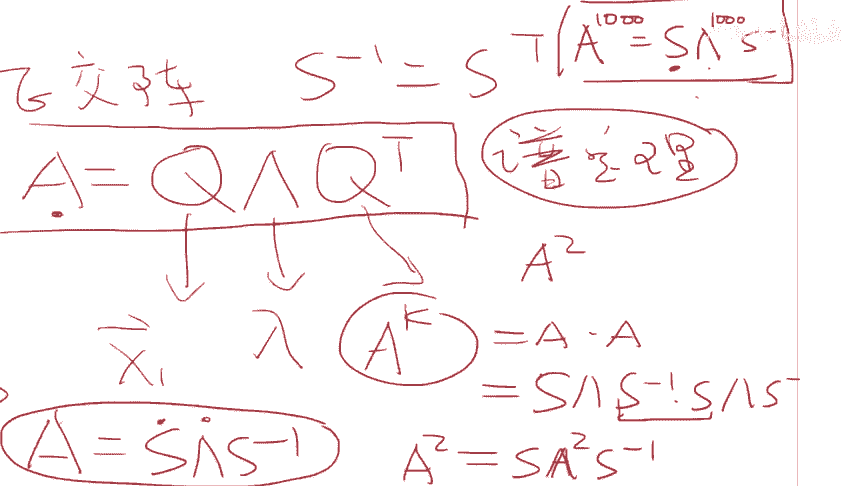 正交阵 S⁻¹ = S^T A^1000 = SΛ^1000 S⁻
A = QΛQ^T 谱定理
A²
x₁ λ A^K = A · A
= SΛS⁻¹·SΛS⁻
A = SΛS⁻¹ A² = SΛ²S⁻¹